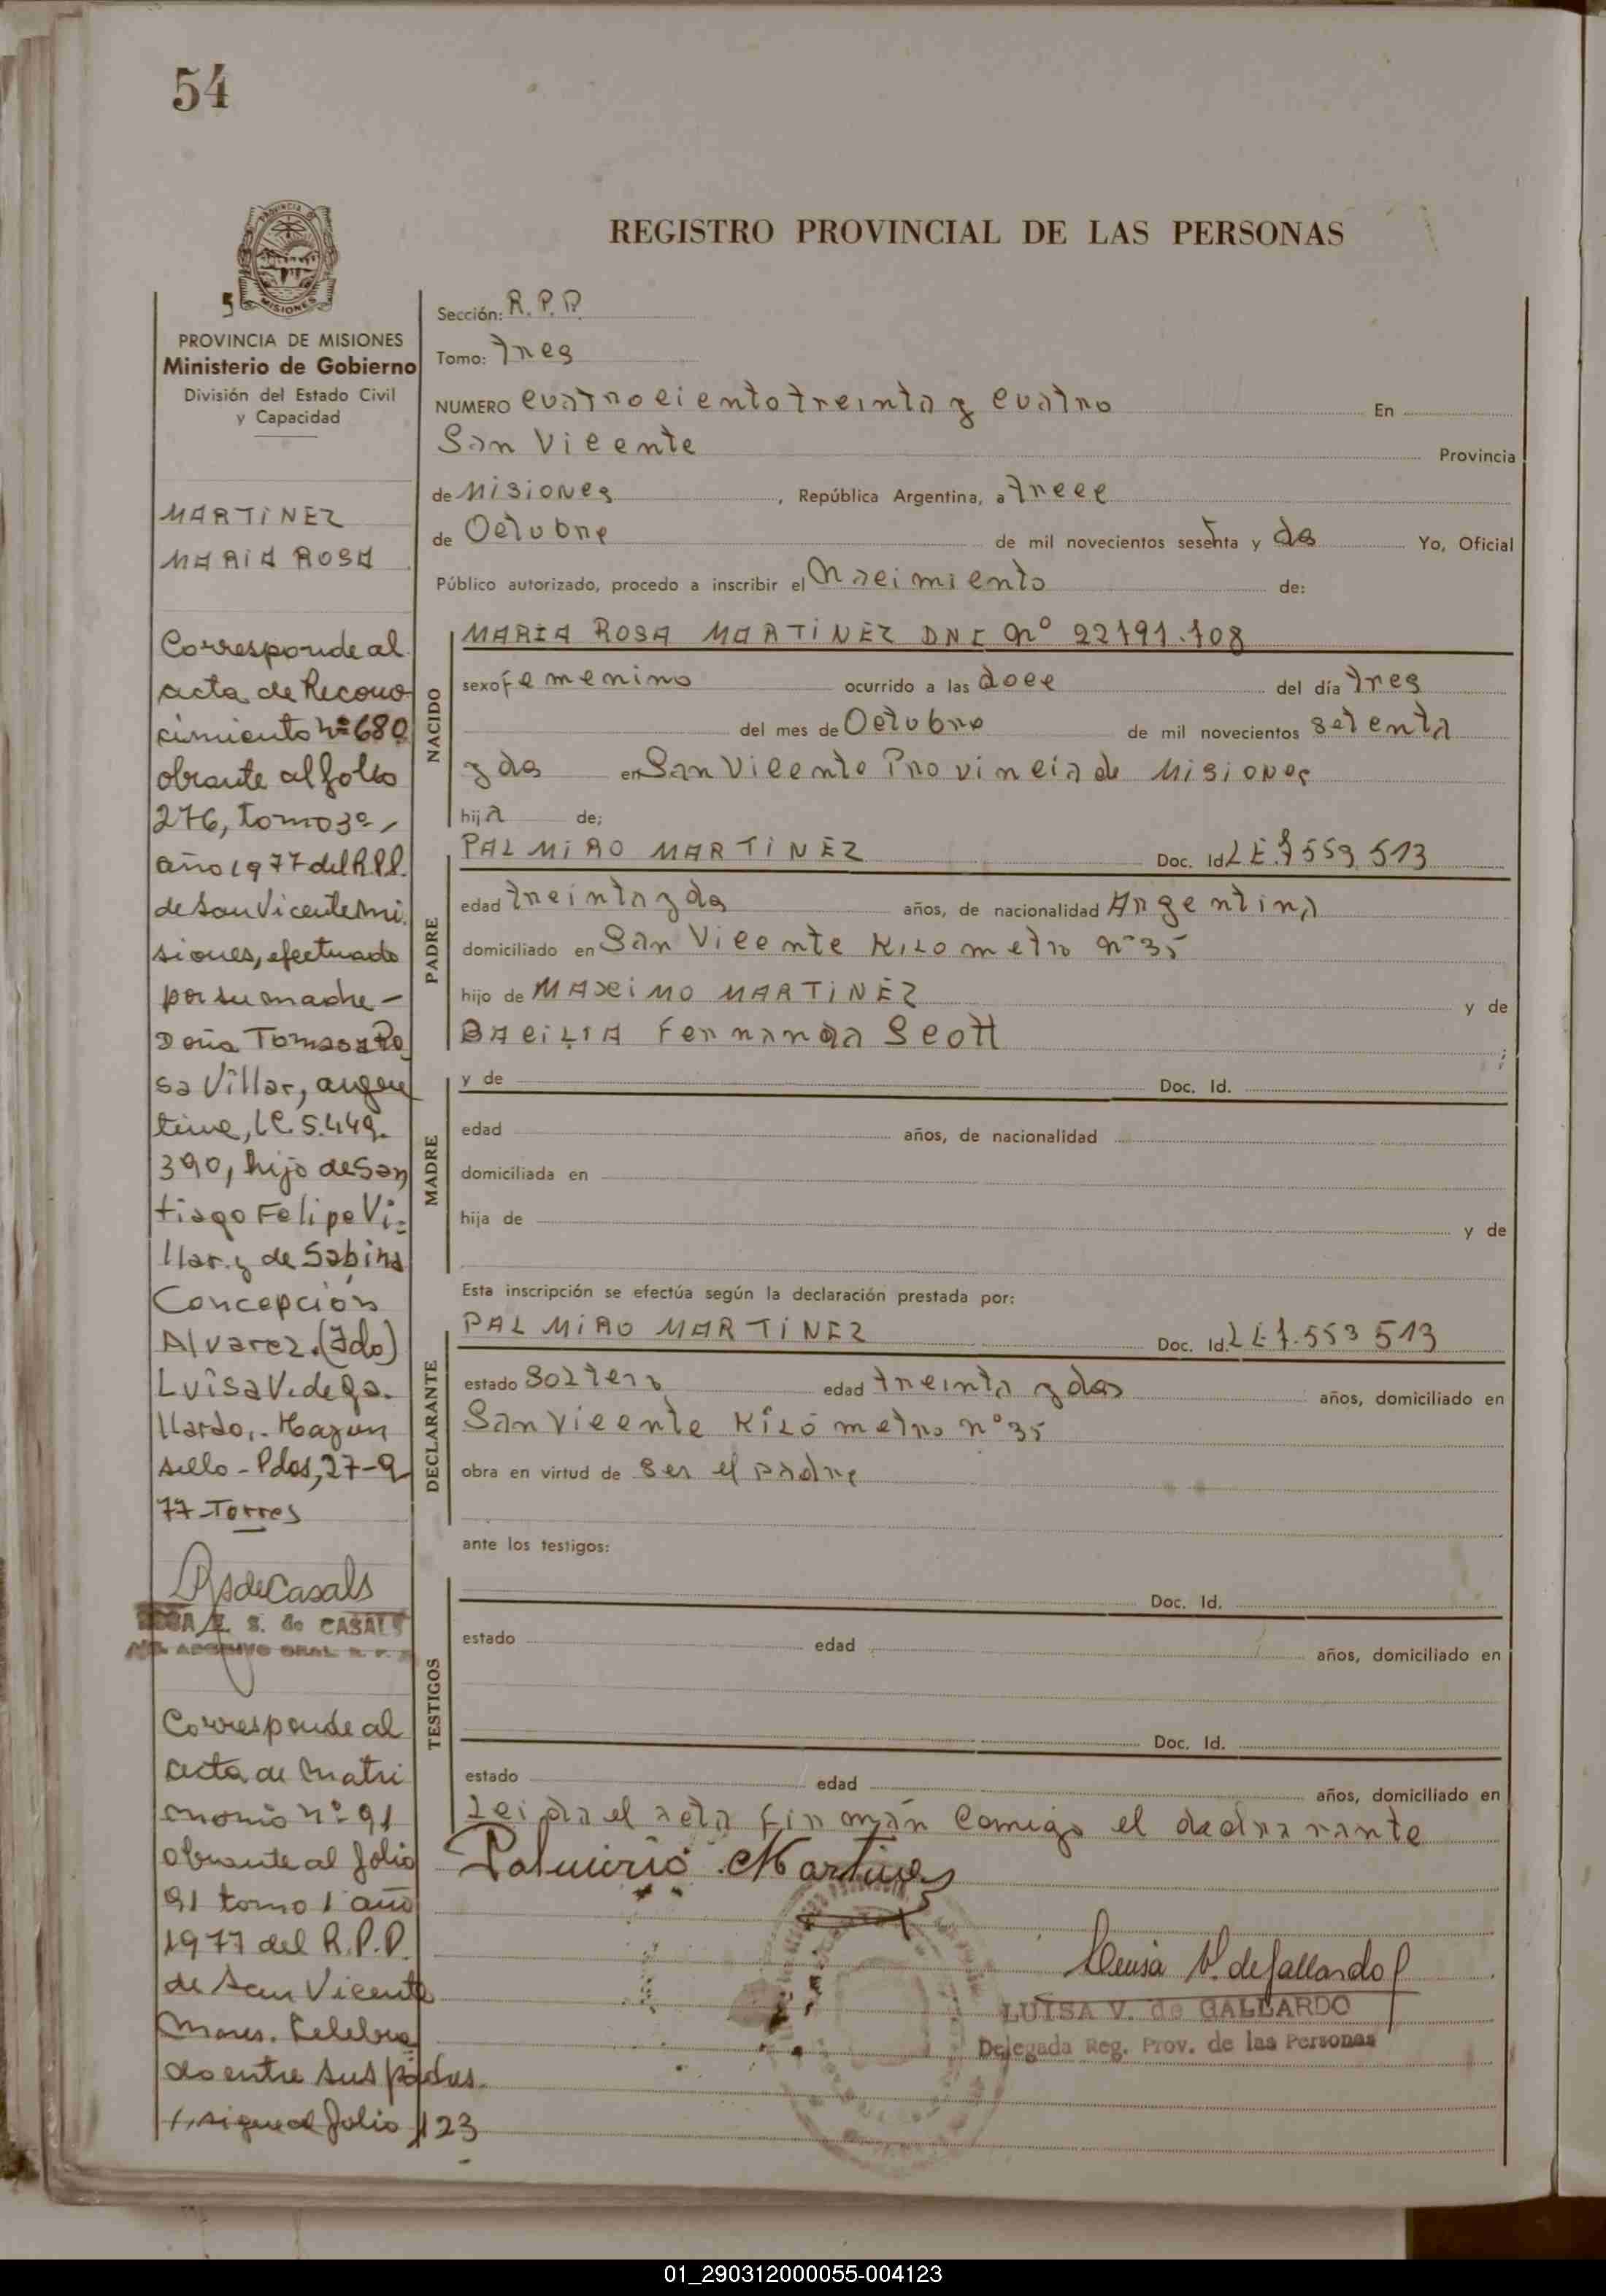 54
REGISTRO PROVINCIAL DE LAS PERSONAS
MISIONES
5
PROVINCIA DE MISIONES
Ministerio de Gobierno
División del Estado Civil
y Capacidad
MARTINEZ
MARIA ROSA
Corresponde al
acta de Recono
cimiento nº 680
obrante al folio
276, tomo 3º,
año 1977 del R.P.P.
de San Vicente Mi
siones, efectuado
por su madre -
Doña Tomasa Ro
sa Villar, argen
tina, LC. 5.449.
390, hija de San
tiago Felipe Vi=
llar y de Sabina
Concepción
Alvarez. (Fdo)
Luisa V. de Ga.
llardo.- Hay un
sello - Pdas, 27-9
77 - Torres
RSdeCasals
S. de CASALS
ARCHIVO GRAL. R. P.
Corresponde al
acta de Matri
monio nº 91
obrante al folio
91 tomo 1 año
1977 del R.P.P.
de San Vicente
Mnes. Celebra
do entre sus padres.
sigue al folio 123
Sección: R.P.P.
Tomo: tres
NUMERO cuatrocientotreinta y cuatro En
San Vicente Provincia
de Misiones, República Argentina, a trece
de Octubre de mil novecientos sesenta y dos Yo, Oficial
Público autorizado, procedo a inscribir el Nacimiento de:
NACIDO
MARIA ROSA MARTINEZ DNI Nº 22791.708
sexo femenino ocurrido a las doce del día tres
del mes de Octubre de mil novecientos setenta
y dos en San Vicente Provincia de Misiones
hija de;
PADRE
PALMIRO MARTINEZ Doc. Id. LE. 7 553 513
edad treinta y dos años, de nacionalidad Argentina
domiciliado en San Vicente Kilometro Nº 35
hijo de MAXIMO MARTINEZ y de
BACILIA Fernanda Scott ;
MADRE
y de Doc. Id.
edad años, de nacionalidad
domiciliada en
hija de y de
Esta inscripción se efectúa según la declaración prestada por:
DECLARANTE
PALMIRO MARTINEZ Doc. Id. LE 7.553 513
estado soltero edad treinta y dos años, domiciliado en
San Vicente Kilómetro nº 35
obra en virtud de ser el padre
ante los testigos:
TESTIGOS
Doc. Id.
estado edad años, domiciliado en
Doc. Id.
estado edad años, domiciliado en
Leida el acta firman comigo el declararante
Palmirio Martinez
Luisa V. de Gallardo
LUISA V. de GALLARDO
Delegada Reg. Prov. de las Personas
01_290312000055-004123